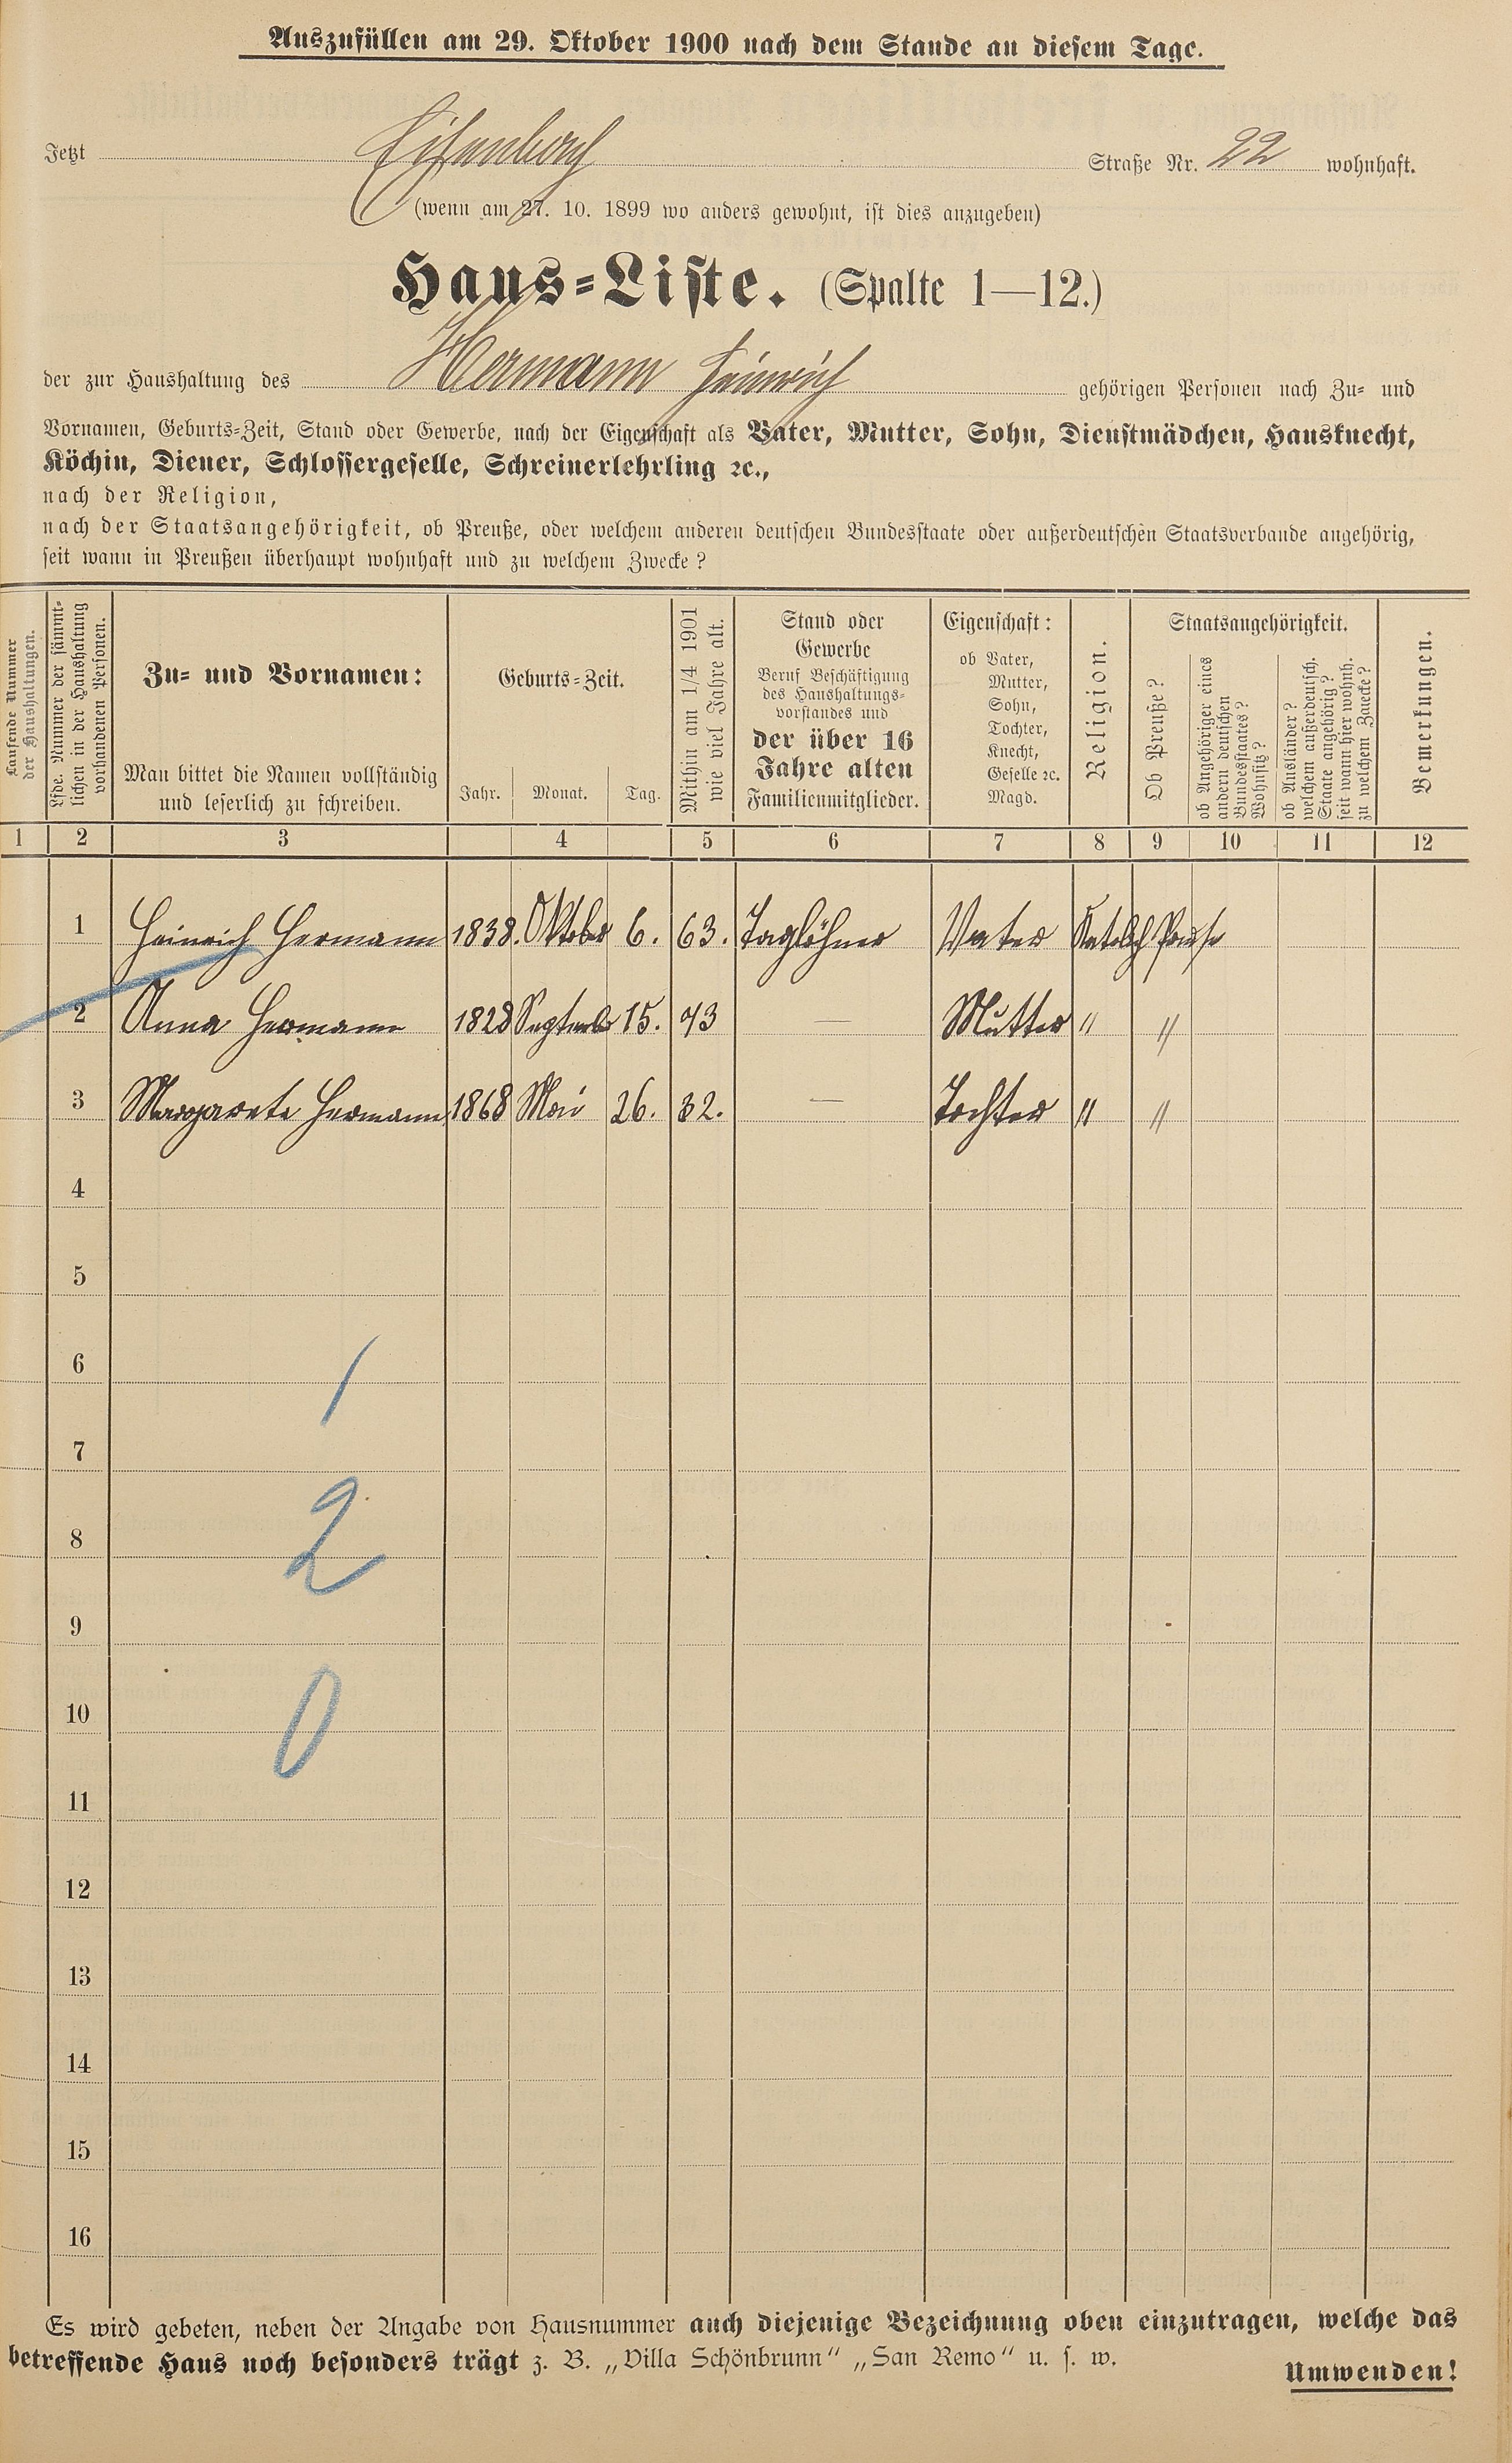 Auszufüllen am 29. Oktober 1900 nach dem Stande an diesem Tage.
Jetzt Eisenbach Straße Nr. 22 wohnhaft.
(wenn am 27. 10. 1899 wo anders gewohnt, ist dies anzugeben)
Haus-Liste. (Spalte 1—12.)
der zur Haushaltung des Hermann Heinrich gehörigen Personen nach Zu- und
Vornamen, Geburts-Zeit, Stand oder Gewerbe, nach der Eigenschaft als Vater, Mutter, Sohn, Dienstmädchen, Hausknecht,
Köchin, Diener, Schlossergeselle, Schreinerlehrling ꝛc.,
nach der Religion,
nach der Staatsangehörigkeit, ob Preuße, oder welchem anderen deutschen Bundesstaate oder außerdeutschen Staatsverbande angehörig,
seit wann in Preußen überhaupt wohnhaft und zu welchem Zwecke?
Laufende Nummer
der Haushaltungen.
Lfde. Nummer der sämmt-
lichen in der Haushaltung
vorhandenen Personen.
Zu- und Vornamen:
Man bittet die Namen vollständig
und leserlich zu schreiben.
Geburts-Zeit.
Jahr. Monat. Tag.
Mithin am 1/4 1901
wie viel Jahre alt.
Stand oder
Gewerbe
Beruf Beschäftigung
des Haushaltungs-
vorstandes und
der über 16
Jahre alten
Familienmitglieder.
Eigenschaft:
ob Vater,
Mutter,
Sohn,
Tochter,
Knecht,
Geselle ꝛc.
Magd.
Religion.
Staatsangehörigkeit.
Ob Preuße?
ob Angehöriger eines
andern deutschen
Bundesstaates?
Wohnsitz?
ob Ausländer?
welchem außerdeutsch.
Staate angehörig?
seit wann hier wohnh.
zu welchem Zwecke?
Bemerkungen.
1 2 3 4 5 6 7 8 9 10 11 12
1 Heinrich Hermann 1838. Oktober 6. 63. Taglöhner Vater Katolsch Preuße
2 Anna Hermann 1828 September 15. 73 — Mutter " "
3 Margarete Hermann 1868 Mai 26. 32. — Tochter " "
4
5
6
1
7
2
8
9
10
0
11
12
13
14
15
16
Es wird gebeten, neben der Angabe von Hausnummer auch diejenige Bezeichnung oben einzutragen, welche das
betreffende Haus noch besonders trägt z. B. „Villa Schönbrunn“ „San Remo“ u. s. w.
Umwenden!